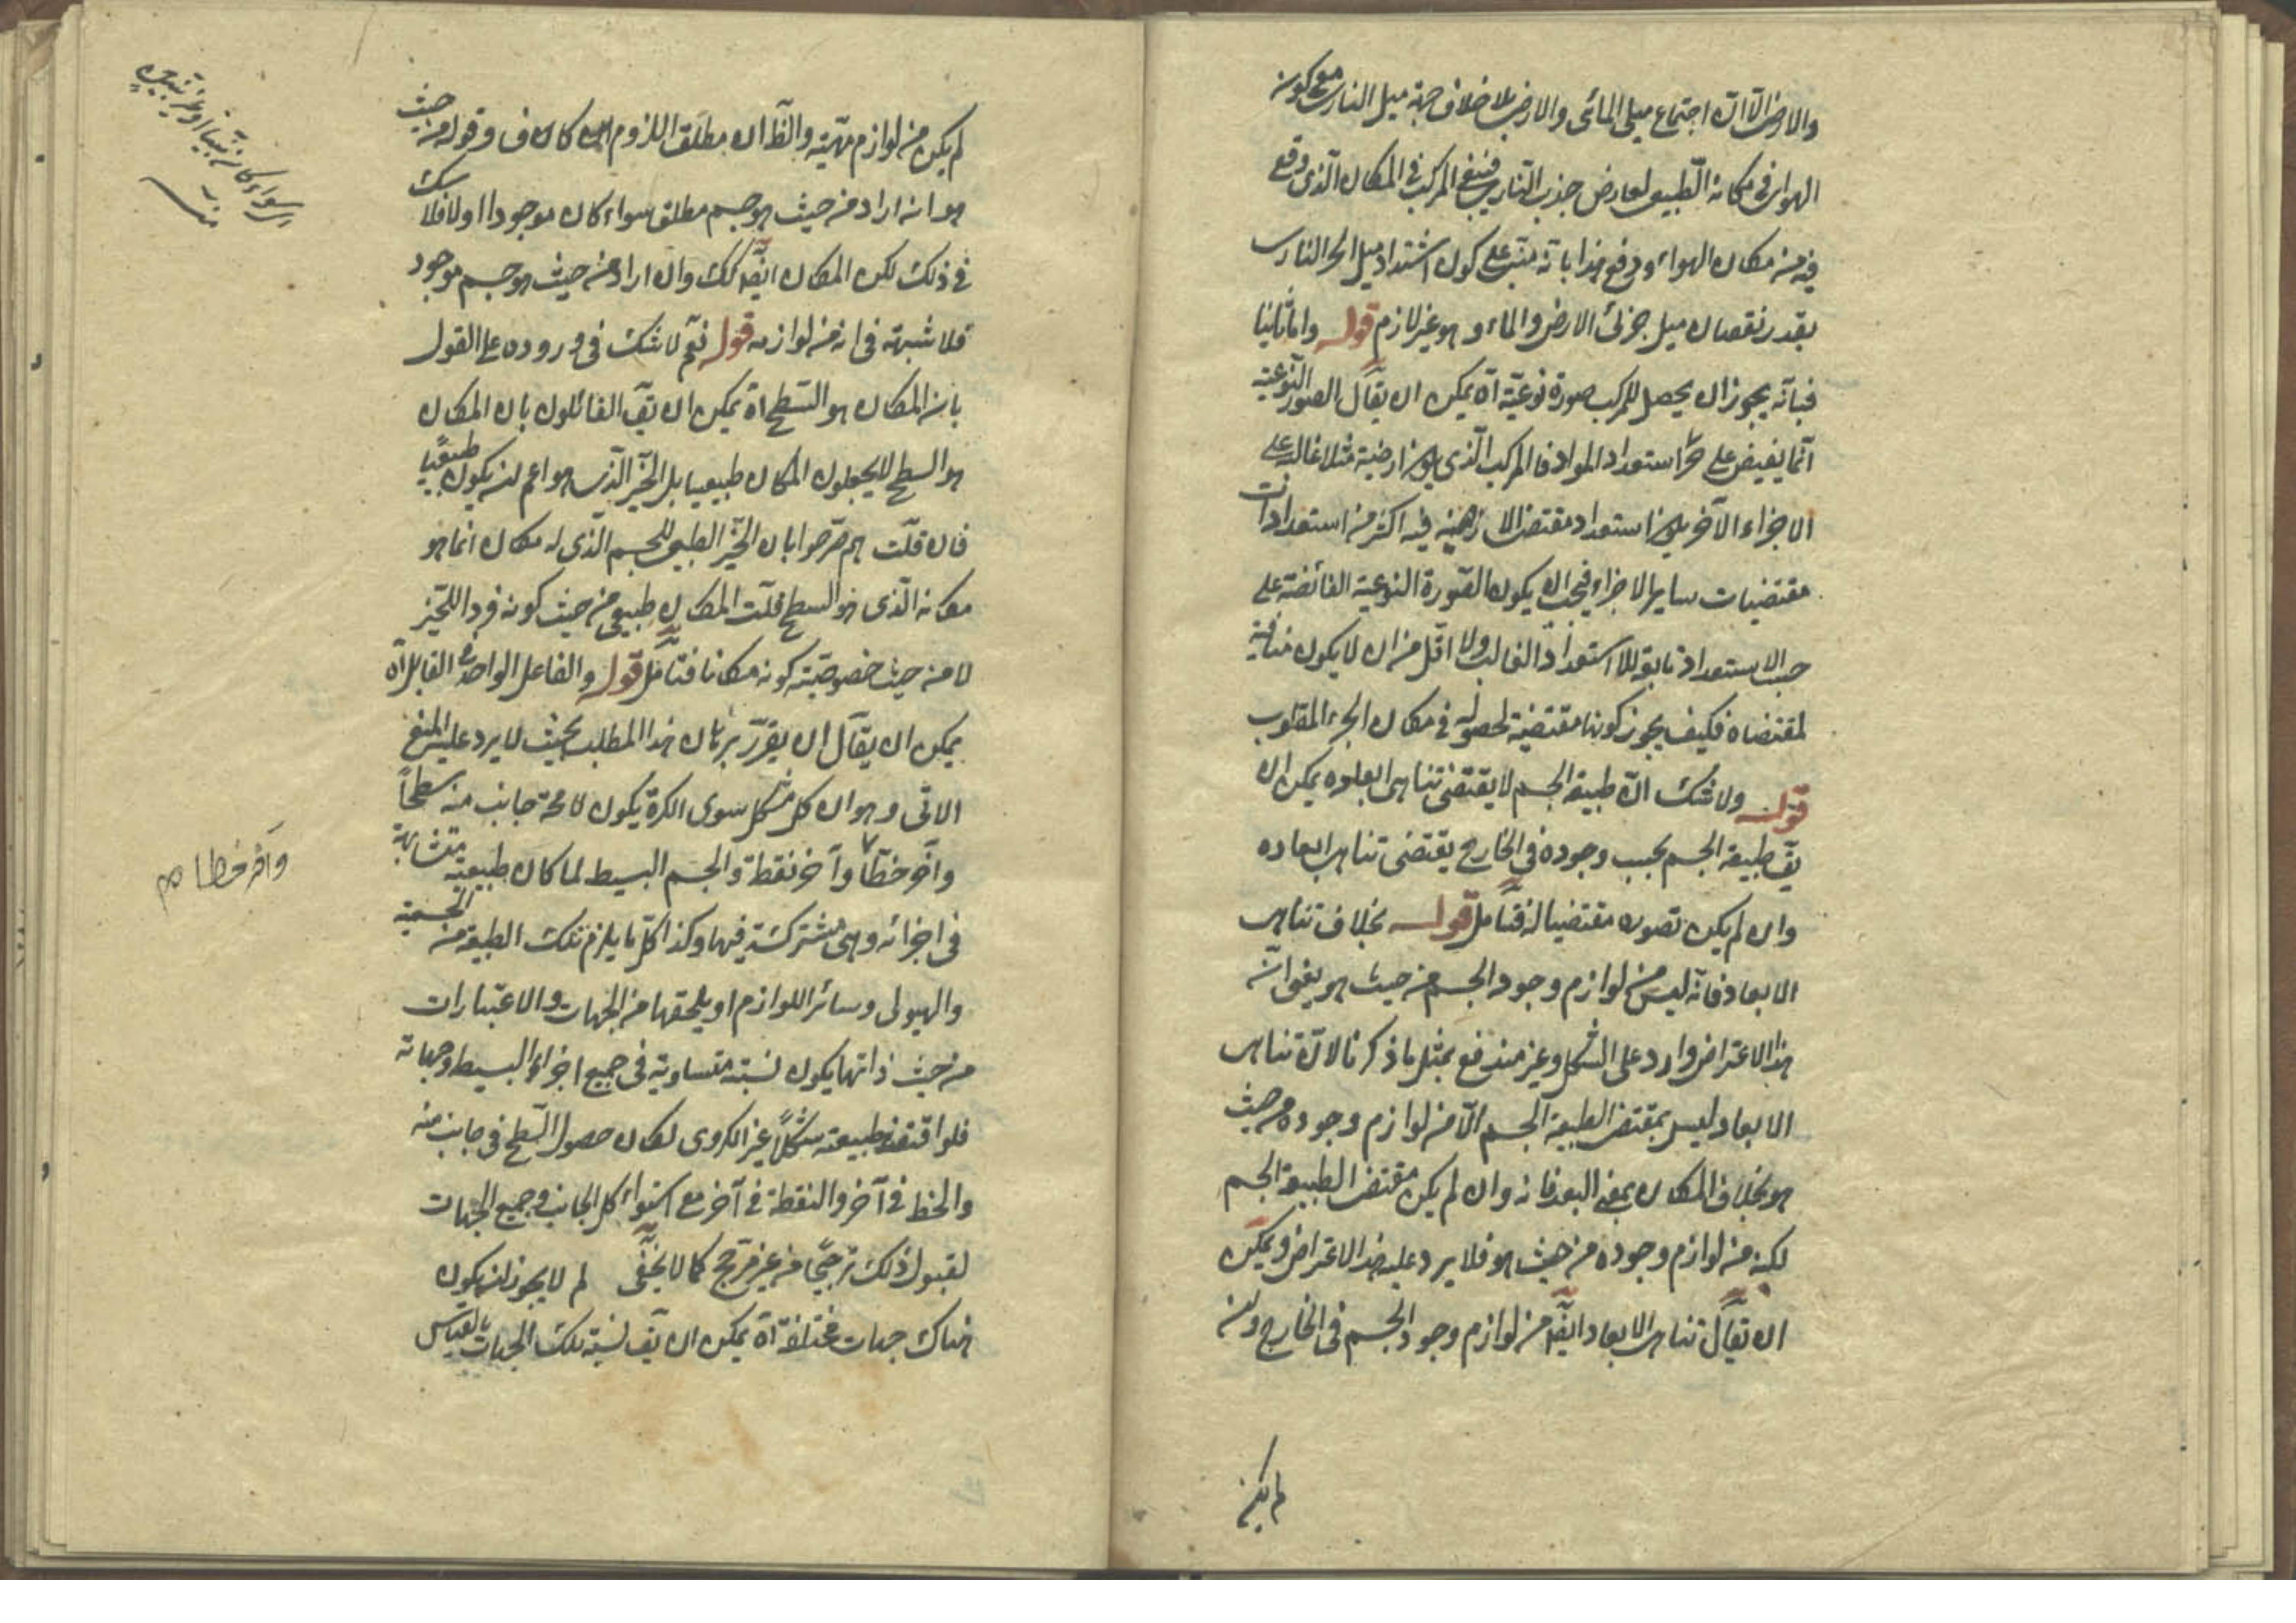 والارض الا ان اجتماع ميلى المائى والارضى بلا خلاف جهة ميل النارى مع كونه
الهواى فى مكانه الطبيعى لعارض جذب النارى فينبغى المركب فى المكان الذى وقع
فيه من مكان الهواء ودفع هذا بانه مبنى على كون اشتداد ميل الجزء النارى
بقدر نقصان ميل جزئى الارض والماء وهو غير لازم قوله واما ثانيا
فبانه يجوز ان يحصل للمركب صورة نوعية اه يمكن ان يقال الصور النوعية
انما يفيض على استعداد المواد فالمركب الذى ارضية مثلا غالبة على
الاجزاء الآخر استعداد مقتضى الارضية فيه اكثر من استعدادات
مقتضيات ساير الاجزاء فيجب ان يكون الصورة النوعية الفائضة على
حسب الاستعداد تابعة للاستعداد الغالب ولا اقل من ان لا يكون منافية
لمقتضاه فكيف يجوز كونها مقتضية لحصوله فى مكان الجزء المغلوب
قوله ولا شك ان طبيعة الجسم لا يقتضى تناهى ابعاده يمكن ان
يق طبيعة الجسم بحسب وجوده فى الخارج يقتضى تناهى ابعاده
وان لم يكن تصوره مقتضيا له فتأمل قوله بخلاف تناهى
الابعاد فانه ليس من لوازم وجود الجسم من حيث هو يعنى ان
هذا الاعتراض وارد على الشكل وغير مندفع بمثل ما ذكرنا لان تناهى
الابعاد ليس بمقتضى لطبيعة الجسم الا من لوازم وجوده من حيث
هو بخلاف المكان بمعنى البعد فانه وان لم يكن مقتضى لطبيعة الجسم
لكنه من لوازم وجوده من حيث هو فلا يرد عليه هذا الاعتراض ويمكن
ان يقال تناهى الابعاد ايضا من لوازم وجود الجسم فى الخارج وان
لم يكن
لم يكن من لوازم مهيته والظ ان مطلق اللزوم كاف وقوله من حيث
هو انه اراد من حيث هو جسم مطلق سواء كان موجودا او لا فلا شك
فى ذلك لكن المكان ايض كك وان اراد من حيث هو جسم موجود
فلا شبهة فى انه من لوازمه قوله نعم لا شك فى وروده على القول
بان المكان هو السطح اه يمكن ان يق القائلون بان المكان
هو السطح لا يجعلون المكان طبيعيا بل الحيز الذى هو اعم لان يكون طبيعيا
فان قلت هم صرحوا بان الحيز الطبيعى للجسم الذى له مكان انما هو
مكانه الذى هو السطح قلت المكان طبيعى من حيث كونه فردا للحيز
لا من حيث خصوصية كونه مكانا فتأمل قوله والفاعل الواحد فى القابل اه
يمكن ان يقال ان يقرر برهان هذا المطلب بحيث لا يرد عليه المنع
الاتى وهو ان كل شكل سوى الكرة يكون لا محة جانب منه سطحا
وآخر خطا وآخر نقطة والجسم البسيط لما كان طبيعته متشابهة
فى اجزائه وهى مشتركة فيها وكذا كل ما يلزم تلك الطبيعة من الجسمية
والهيولى وسائر اللوازم او يلحقها من الجهات والاعتبارات
من حيث ذاتها يكون نسبته متساوية فى جميع اجزاء البسيط وجهاته
فلو اقتضى طبيعته شكلا غير الكروى لكان حصول السطح فى جانب منه
والخط فى آخر والنقطة فى آخر مع استواء كل الجانب وجميع الجهات
لقبول ذلك ترجيحا من غير مرجح كما لا يخفى لم لا يجوز ان يكون
هناك جهات مختلفة اه يمكن ان يق نسبة تلك الجهات بالقياس
سواء كانت
منه
وآخر خطا م